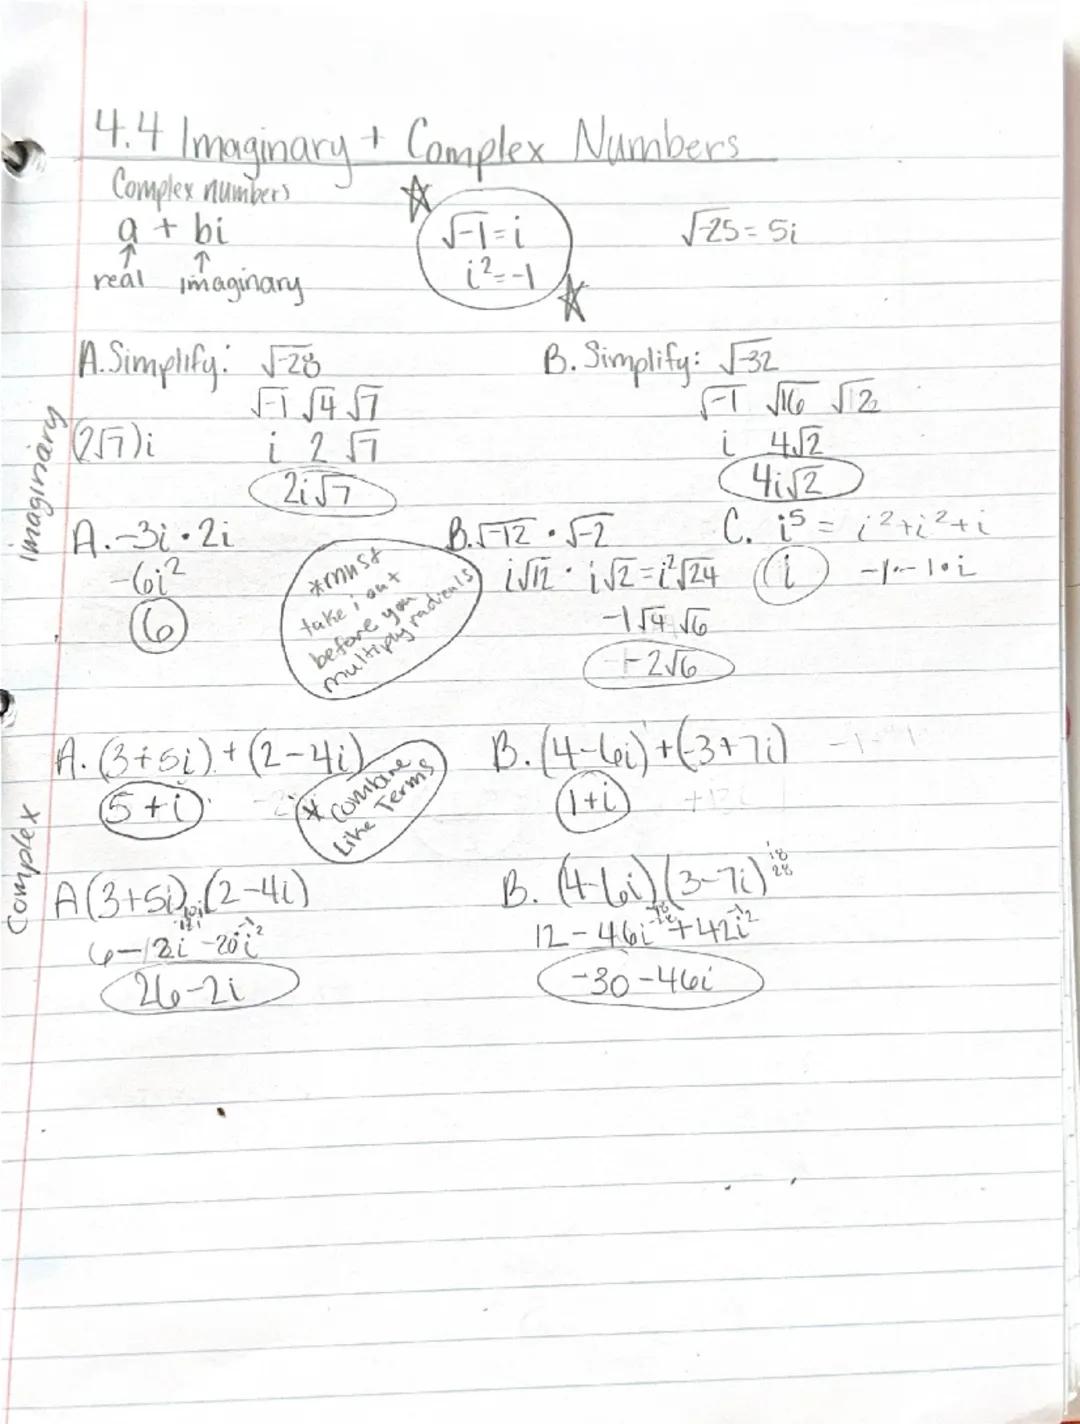 4.4 Imaginary + Complex Numbers
Complex numbers
a + bi
↑ ↑
real imaginary
√-1 = i
i² = -1
√-25 = 5i
Imaginary
A. Simplify: √-28
√-1 √4 √7
(2√7)i
i 2 √7
2i√7
B. Simplify: √-32
√-1 √16 √2
i 4√2
4i√2
A. -3i · 2i
-6i²
6
*must
take i out
before you
multiply radicals
B. √-12 · √-2
i√12 · i√2 = i²√24
-1√4 √6
-2√6
C. i⁵ = i²+i²+i
i -1·-1·i
Complex
A. (3+5i) + (2-4i)
5+i
* Combine
Like Terms
B. (4-6i)+(-3+7i)
1+i
A (3+5i)·(2-4i)
6-2i -20i²
26-2i
B. (4-6i)(3-7i)
18
28
12-46i+42i²
-30-46i